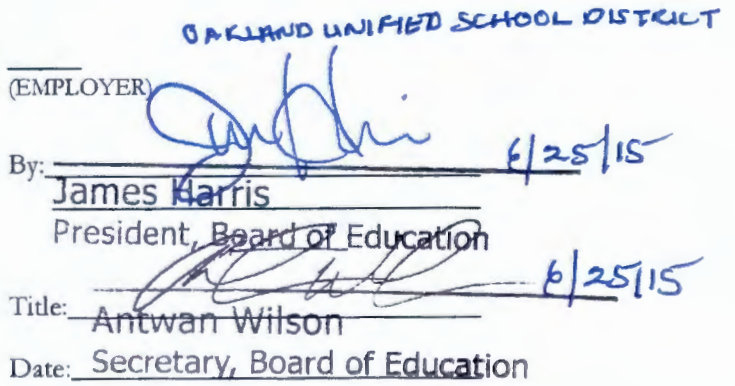 OAKLAND UNIFIED SCHOOL DISTRICT
(EMPLOYER)
By: 6/25/15
James Harris
President, Board of Education
6/25/15
Title: Antwan Wilson
Date: Secretary, Board of Education